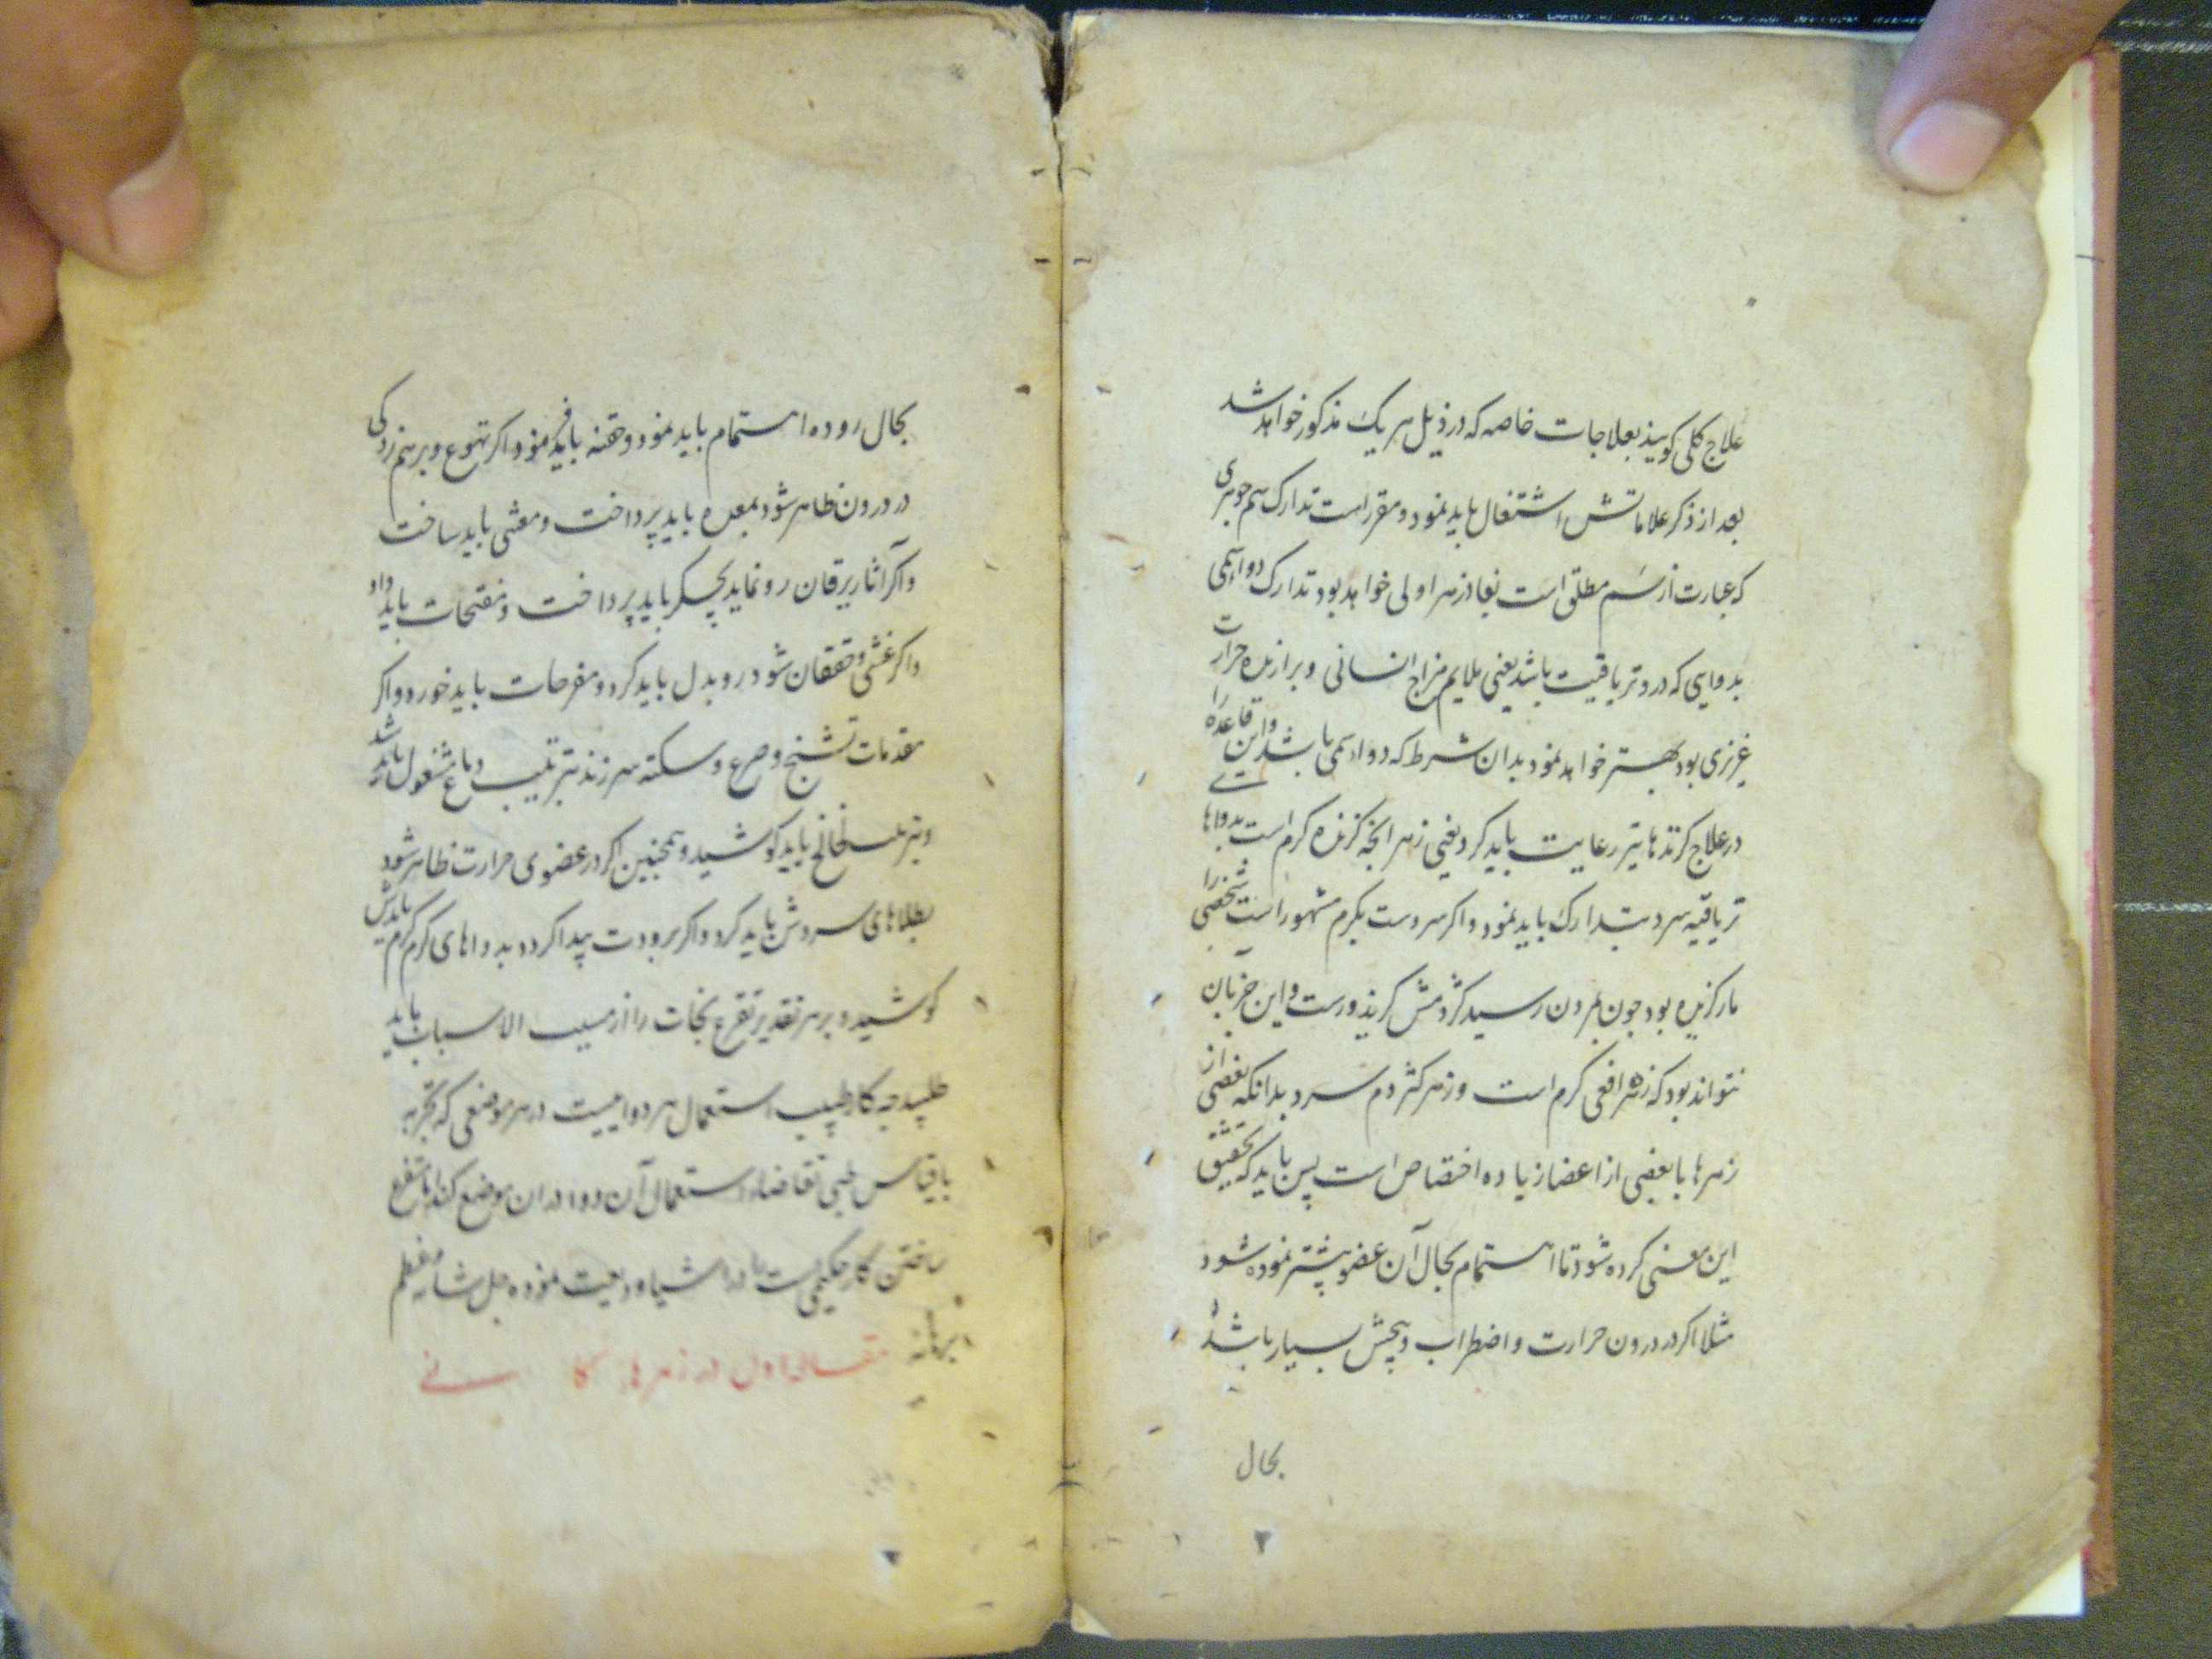 علاج کلی کویند بعلاجات خاصه که در ذیل هر یک مذکور خواهد شد
بعد از ذکر علاماتش اشتغال باید نمود و مقرر است تدارک سم جوهری
که عبارت از سَم مطلق است بفادزهر اولی خواهد بود تدارک دوا سمی
بدوایی که درو تریاقیت باشد یعنی ملایم مزاج انسانی و برازنده حرارت
غریزی بود بهتر خواهد نمود بدان شرط که دوا سمی باشد و این قاعده را
در علاج کزندها نیز رعایت باید کرد یعنی زهر انچه کزنده کرم است بدواها
تریاقیه سرد تدارک باید نمود و اکر سردست بکرم مشهور است شخصی را
مار کزیده بود چون بمردن رسید کژدمش کزید ورست و این جز بآن
نتواند بود که زهر افعی کرم است و زهر کژدم سرد بدانکه بعضی از
زهرها با بعضی از اعضا زیاده اختصاص است پس باید که تحقیق
این معنی کرده شود تا اهتمام بحال آن عضو پیشتر نموده شود
مثلا اکر در درون حرارت و اضطراب و پیچش بسیار باشد
بحال
۲
بحال روده اهتمام باید نمود و حقنه باید فرمود اکر تهوع و برهم زدکی
در درون ظاهر شود بمعده باید پرداخت و مغثی باید ساخت
و اکر آثار یرقان رو نماید بجکر باید پرداخت و مفتحات باید داد
و اکر غشی و خفقان شود رو بدل باید کرد و مفرحات باید خورد و اکر
مقدمات تشنج و صرع و سکته سر زند بترتیب دماغ مشغول باید شد
و بتر لخالخ باید کوشید و همچنین اکر در عضوی حرارت ظاهر شود
بطلاهای سردش باید کرد و اکر برودت پیدا کرد بدواهای کرم کرم بایدش
کوشید و بر هر تقدیر تفرع نجات را از مسبب الاسباب باید
طلبید چه کار طبیب استعمال هر دواییست در هر موضعی که تجربه
یا قیاس طبی تقاضاء استعمال آن دوا در ان موضع کند اما نفع
یافتن کار حکیمی است که در اشیا ودیعت نموده جل شانه و عظم
برهانه مقاله اول در زهرهاء کا نی